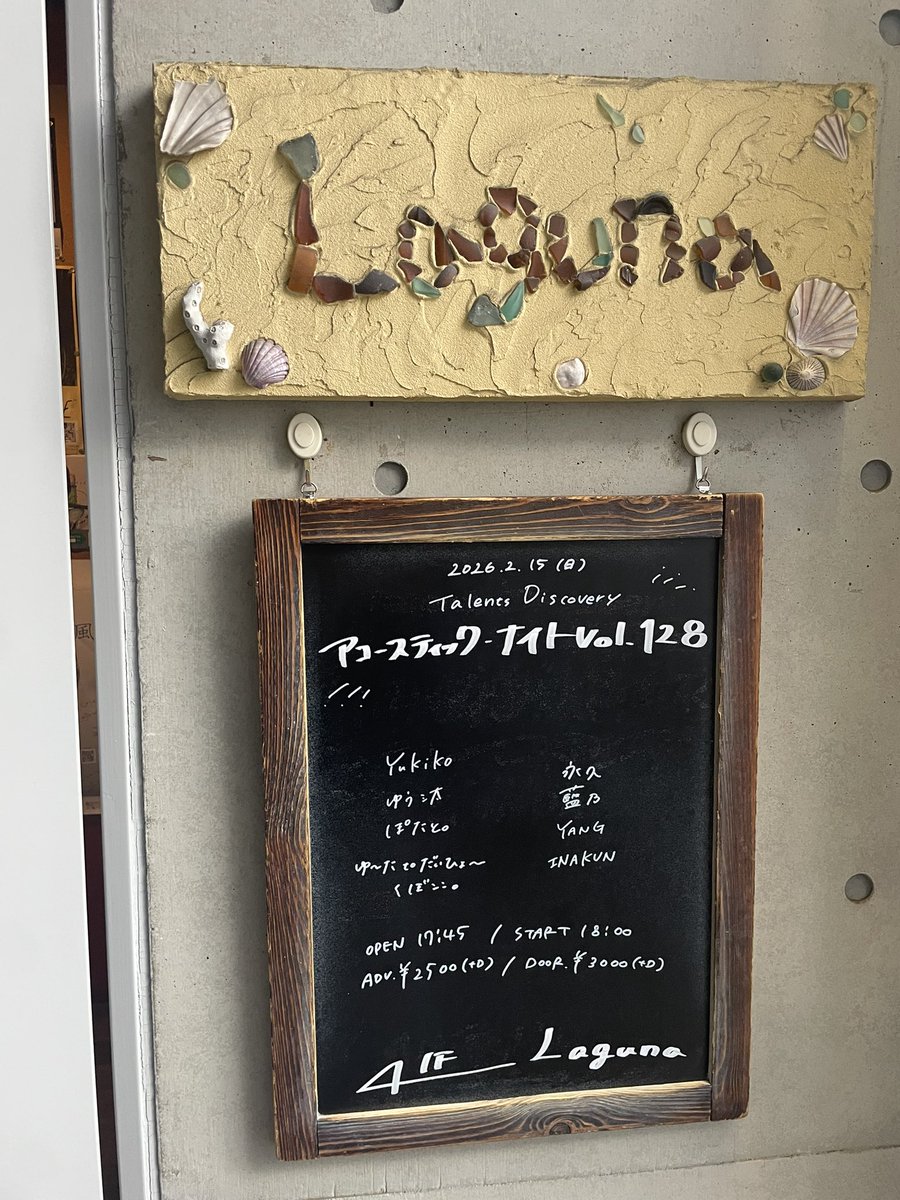 Laguna
2026.2.15(日)
Talents Discovery
アコースティック・ナイトVol.128
Yukiko
ゆう汰
ぽたと。
ゆ〜たとだいひょ〜
くぼここ。
永久
藍乃
YANG
INAKUN
OPEN 17:45 / START 18:00
ADV.¥2500(+D) / DOOR.¥3000(+D)
4F Laguna
風